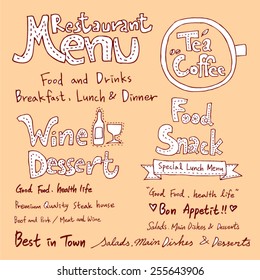 Restaurant
Menu
Food and Drinks
Breakfast, Lunch & Dinner
Tea
or
Coffee
Wine
Dessert
Food
Snack
Special Lunch Menu
Good Food, health life
Premiumn Quality Steak house
Beef and Fish / Meat and Wine
Best in Town
"Good Food, health life"
♥ Bon Appetit!! ♡
Salads, Main Dishes & Desserts
Salads, Main Dishes & Desserts
shutterstock
IMAGE ID: 255643906
www.shutterstock.com